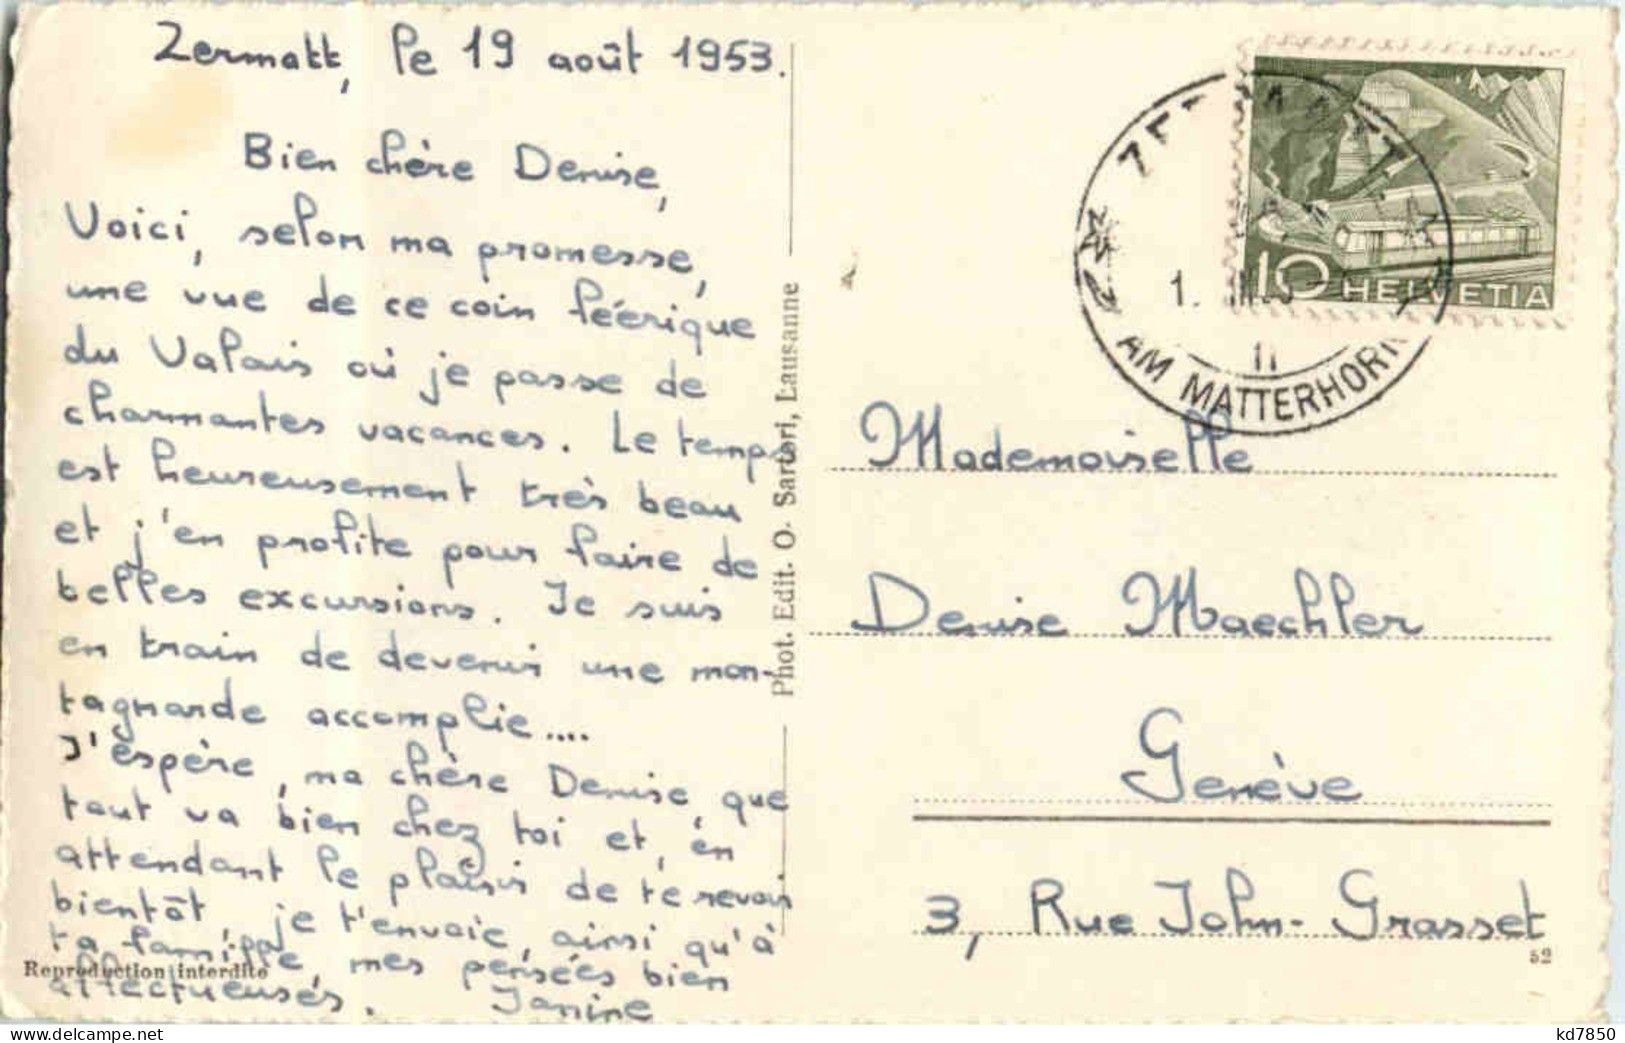 Zermatt, le 19 août 1953.
Bien chère Denise,
Voici, selon ma promesse,
une vue de ce coin féérique
du Valais où je passe de
charmantes vacances. Le temps
est heureusement très beau
et j'en profite pour faire de
belles excursions. Je suis
en train de devenir une mon-
tagnarde accomplie....
J'espère, ma chère Denise, que
tout va bien chez toi et, en
attendant le plaisir de te revoir
bientôt, je t'envoie, ainsi qu'à
ta famille, mes pensées bien
affectueuses. Janine
Reproduction interdite
Phot. Edit. O. Sartori, Lausanne
10 HELVETIA
AM MATTERHORN
Mademoiselle
Denise Maechler
Genève
3, Rue John-Grasset
52
© delcampe.net
kd7850